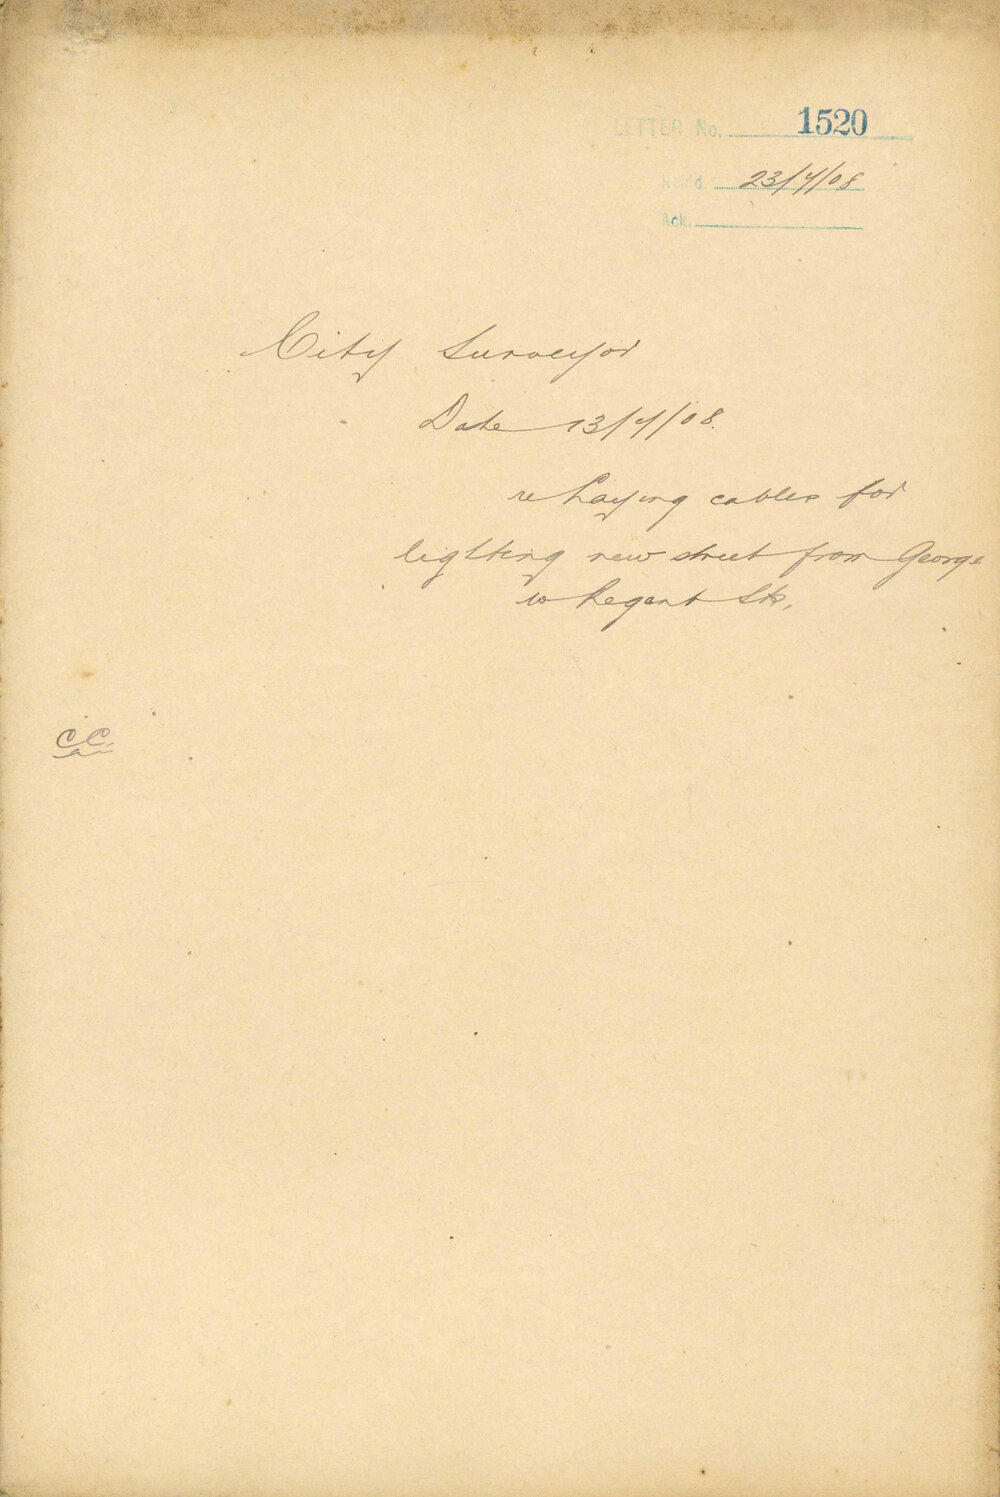 LETTER No. 1520
Rec'd. 23/4/08
Ack.
City Surveyor
Date 13/4/08.
re Laying cables for
lighting new street from George
to Regent Sts.
C.C.